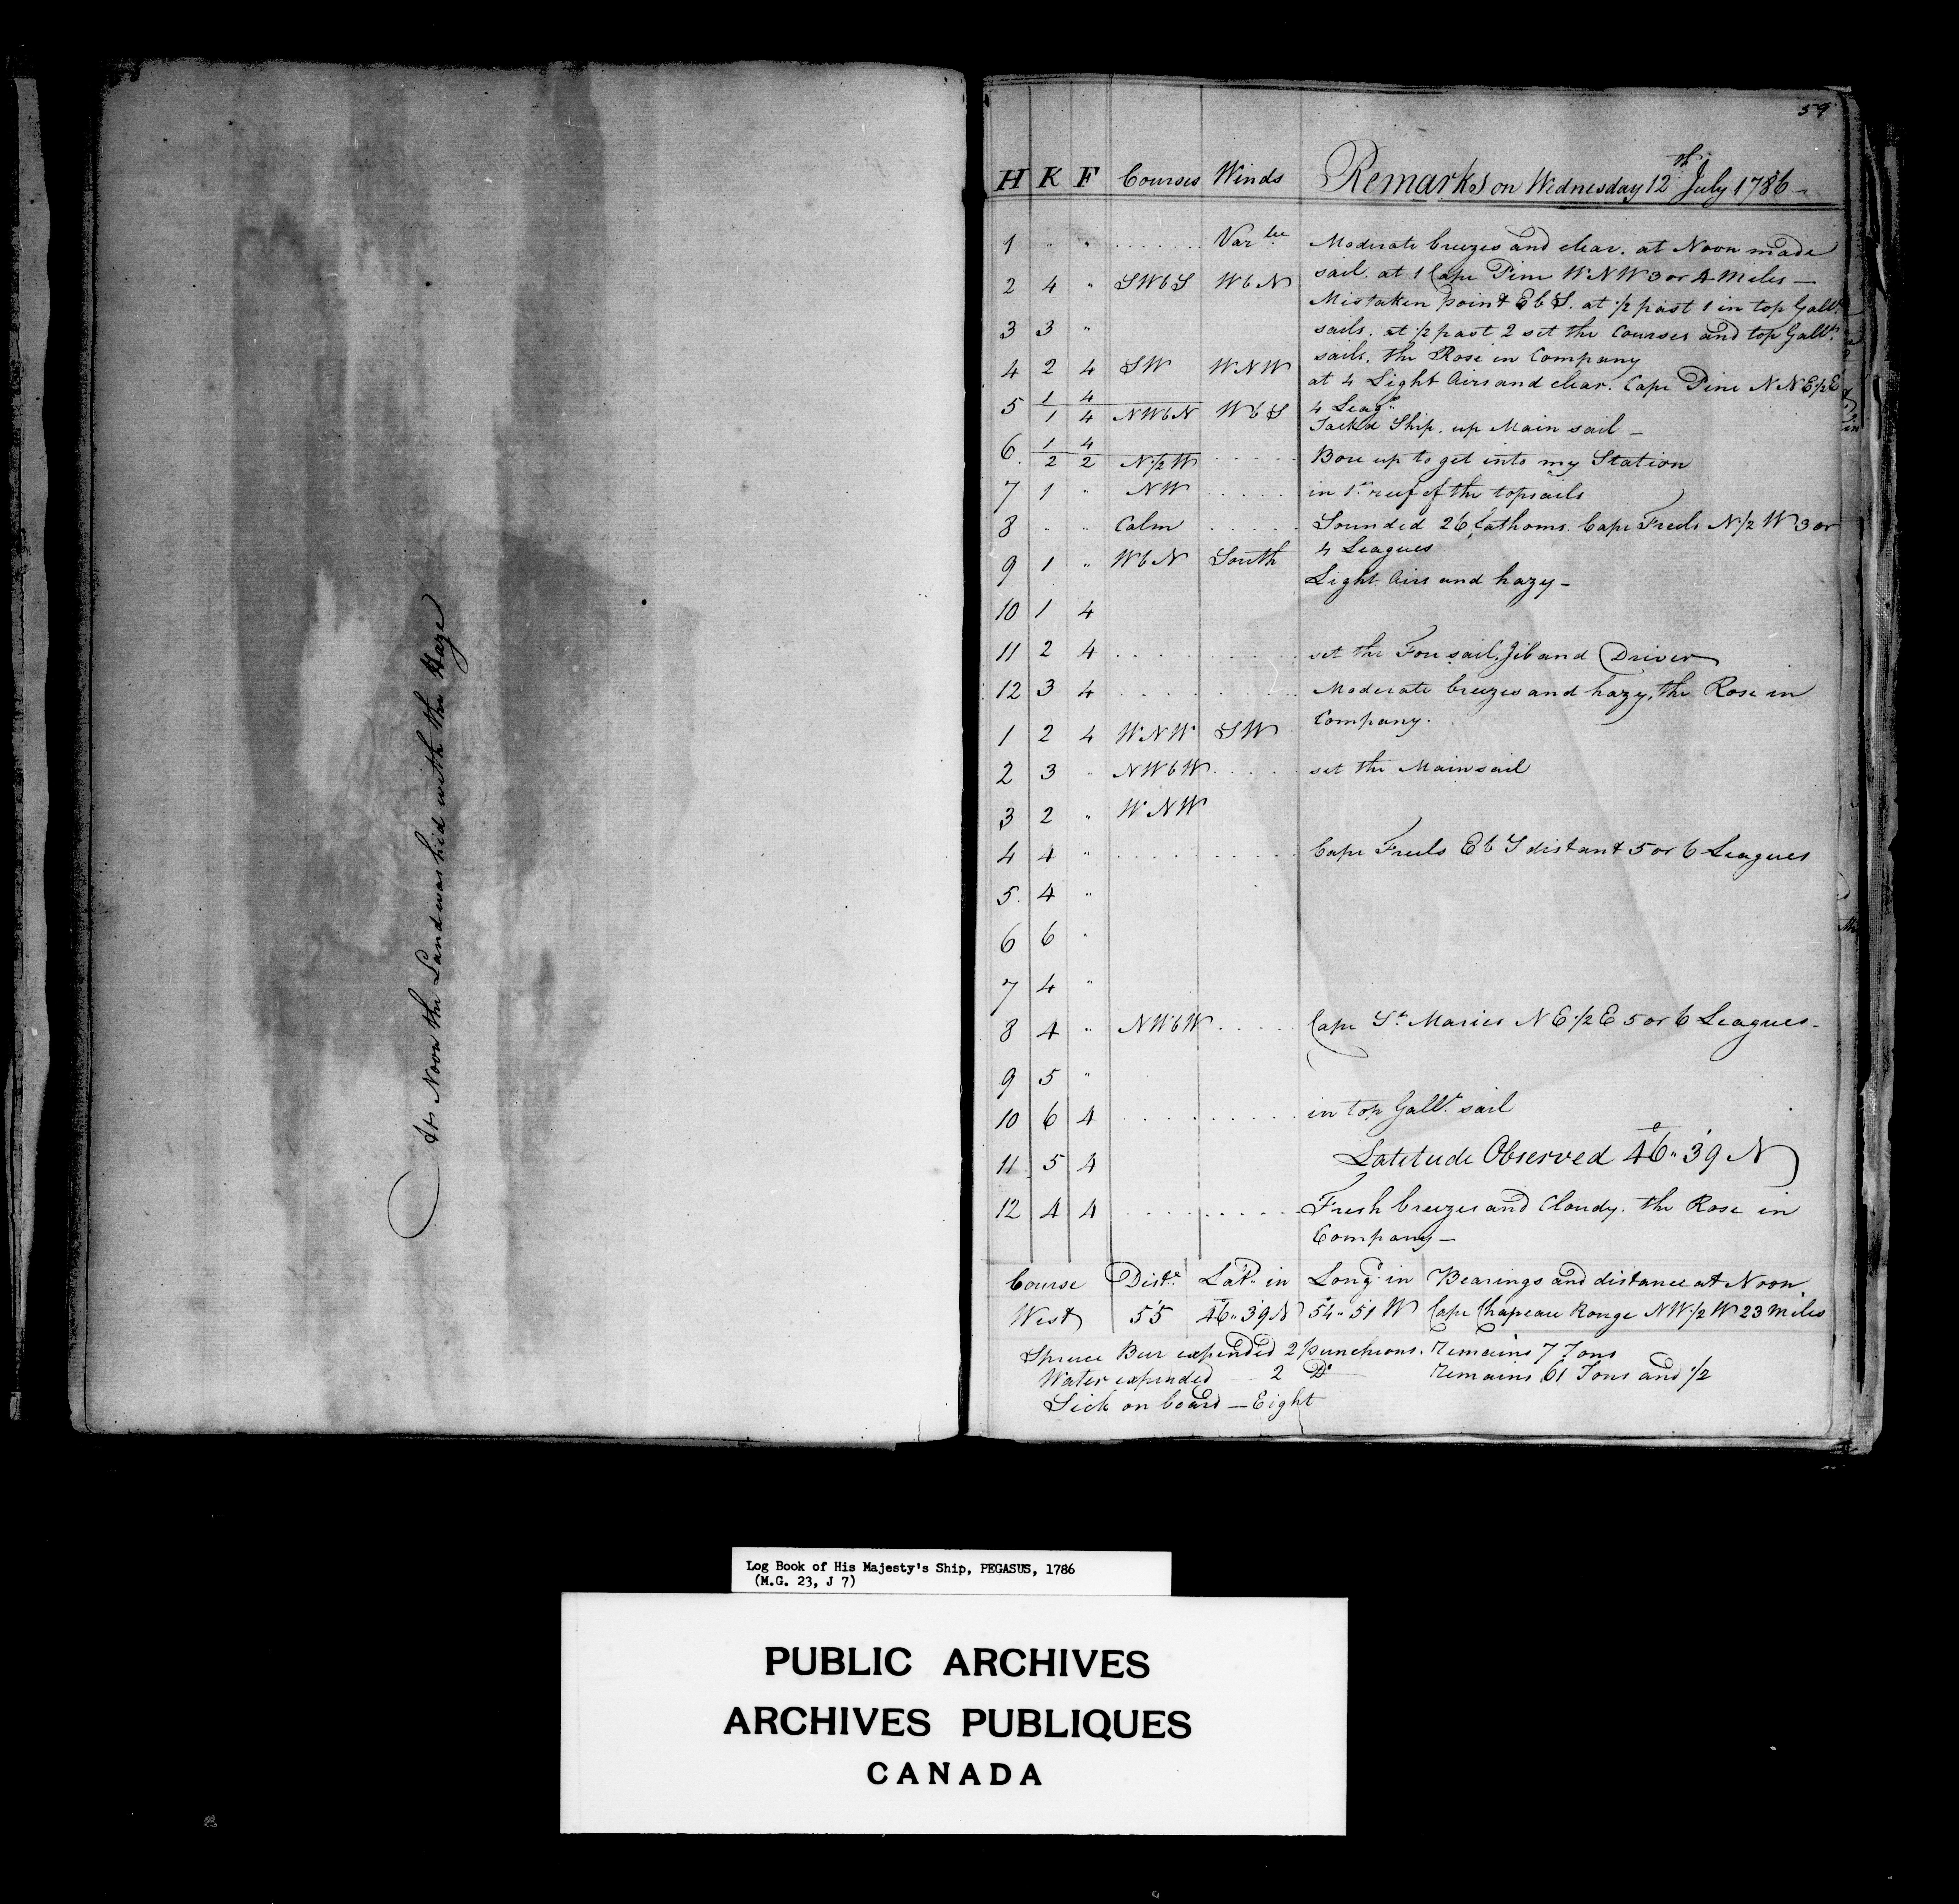 At Noon the Land was hid with the Haze
59
H K F Courses Winds Remarks on Wednesday 12th July 1786
1 " " . . . . . . . Varble Moderate breezes and clear. at Noon made
sail. at 1 Cape Pine WNW 3 or 4 Miles —
2 4 " SWbS WbN
Mistaken point EbS. at 1/2 past 1 in top Gallt.
3 3 " sails. at 1/2 past 2 set the Courses and top Gallt.
sails. the Rose in Company
4 2 4 SW WNW at 4 Light Airs and clear. Cape Pine NNE1/2E
1 4
5 4 Leags.
1 4 NWbN WbS Tack'd Ship. up Main sail —
6 1 4
2 2 N1/2W . . . . . Bore up to get into my Station
7 1 " NW . . . . . in 1st reef of the topsails
8 " " Calm . . . . . Sounded 26 fathoms. Cape Freels N1/2W 3 or
4 Leagues
9 1 " WbN South
Light Airs and hazy —
10 1 4
11 2 4 . . . . . . . . . set the Fore sail, Jib and Driver
12 3 4 . . . . . . . . . Moderate breezes and hazy, the Rose in
Company.
1 2 4 WNW SW
2 3 " NWbW . . . . . set the Mainsail
3 2 " WNW
4 4 " . . . . . . . . . Cape Freels EbS distant 5 or 6 Leagues
5 4 "
6 6 "
7 4 "
8 4 " NWbW . . . . Cape St. Maries NE1/2E 5 or 6 Leagues —
9 5 "
10 6 4 . . . . . . . . . in top Gallt. sail
11 5 4 Latitude Observed 46°" 39 N
12 4 4 . . . . . . . . . Fresh breezes and Cloudy. the Rose in
Company —
Course Diste. Latd. in Longd. in Bearings and distance at Noon.
West 55 46" 39 N 54" 51 W Cape Chapeau Rouge NW1/2W 23 Miles
Spruce Beer expended 2 puncheons. Remains 7 Tons
Water expended 2 Do Remains 61 Tons and 1/2
Sick on board — Eight
Log Book of His Majesty's Ship, PEGASUS, 1786
(M.G. 23, J 7)
PUBLIC ARCHIVES
ARCHIVES PUBLIQUES
CANADA